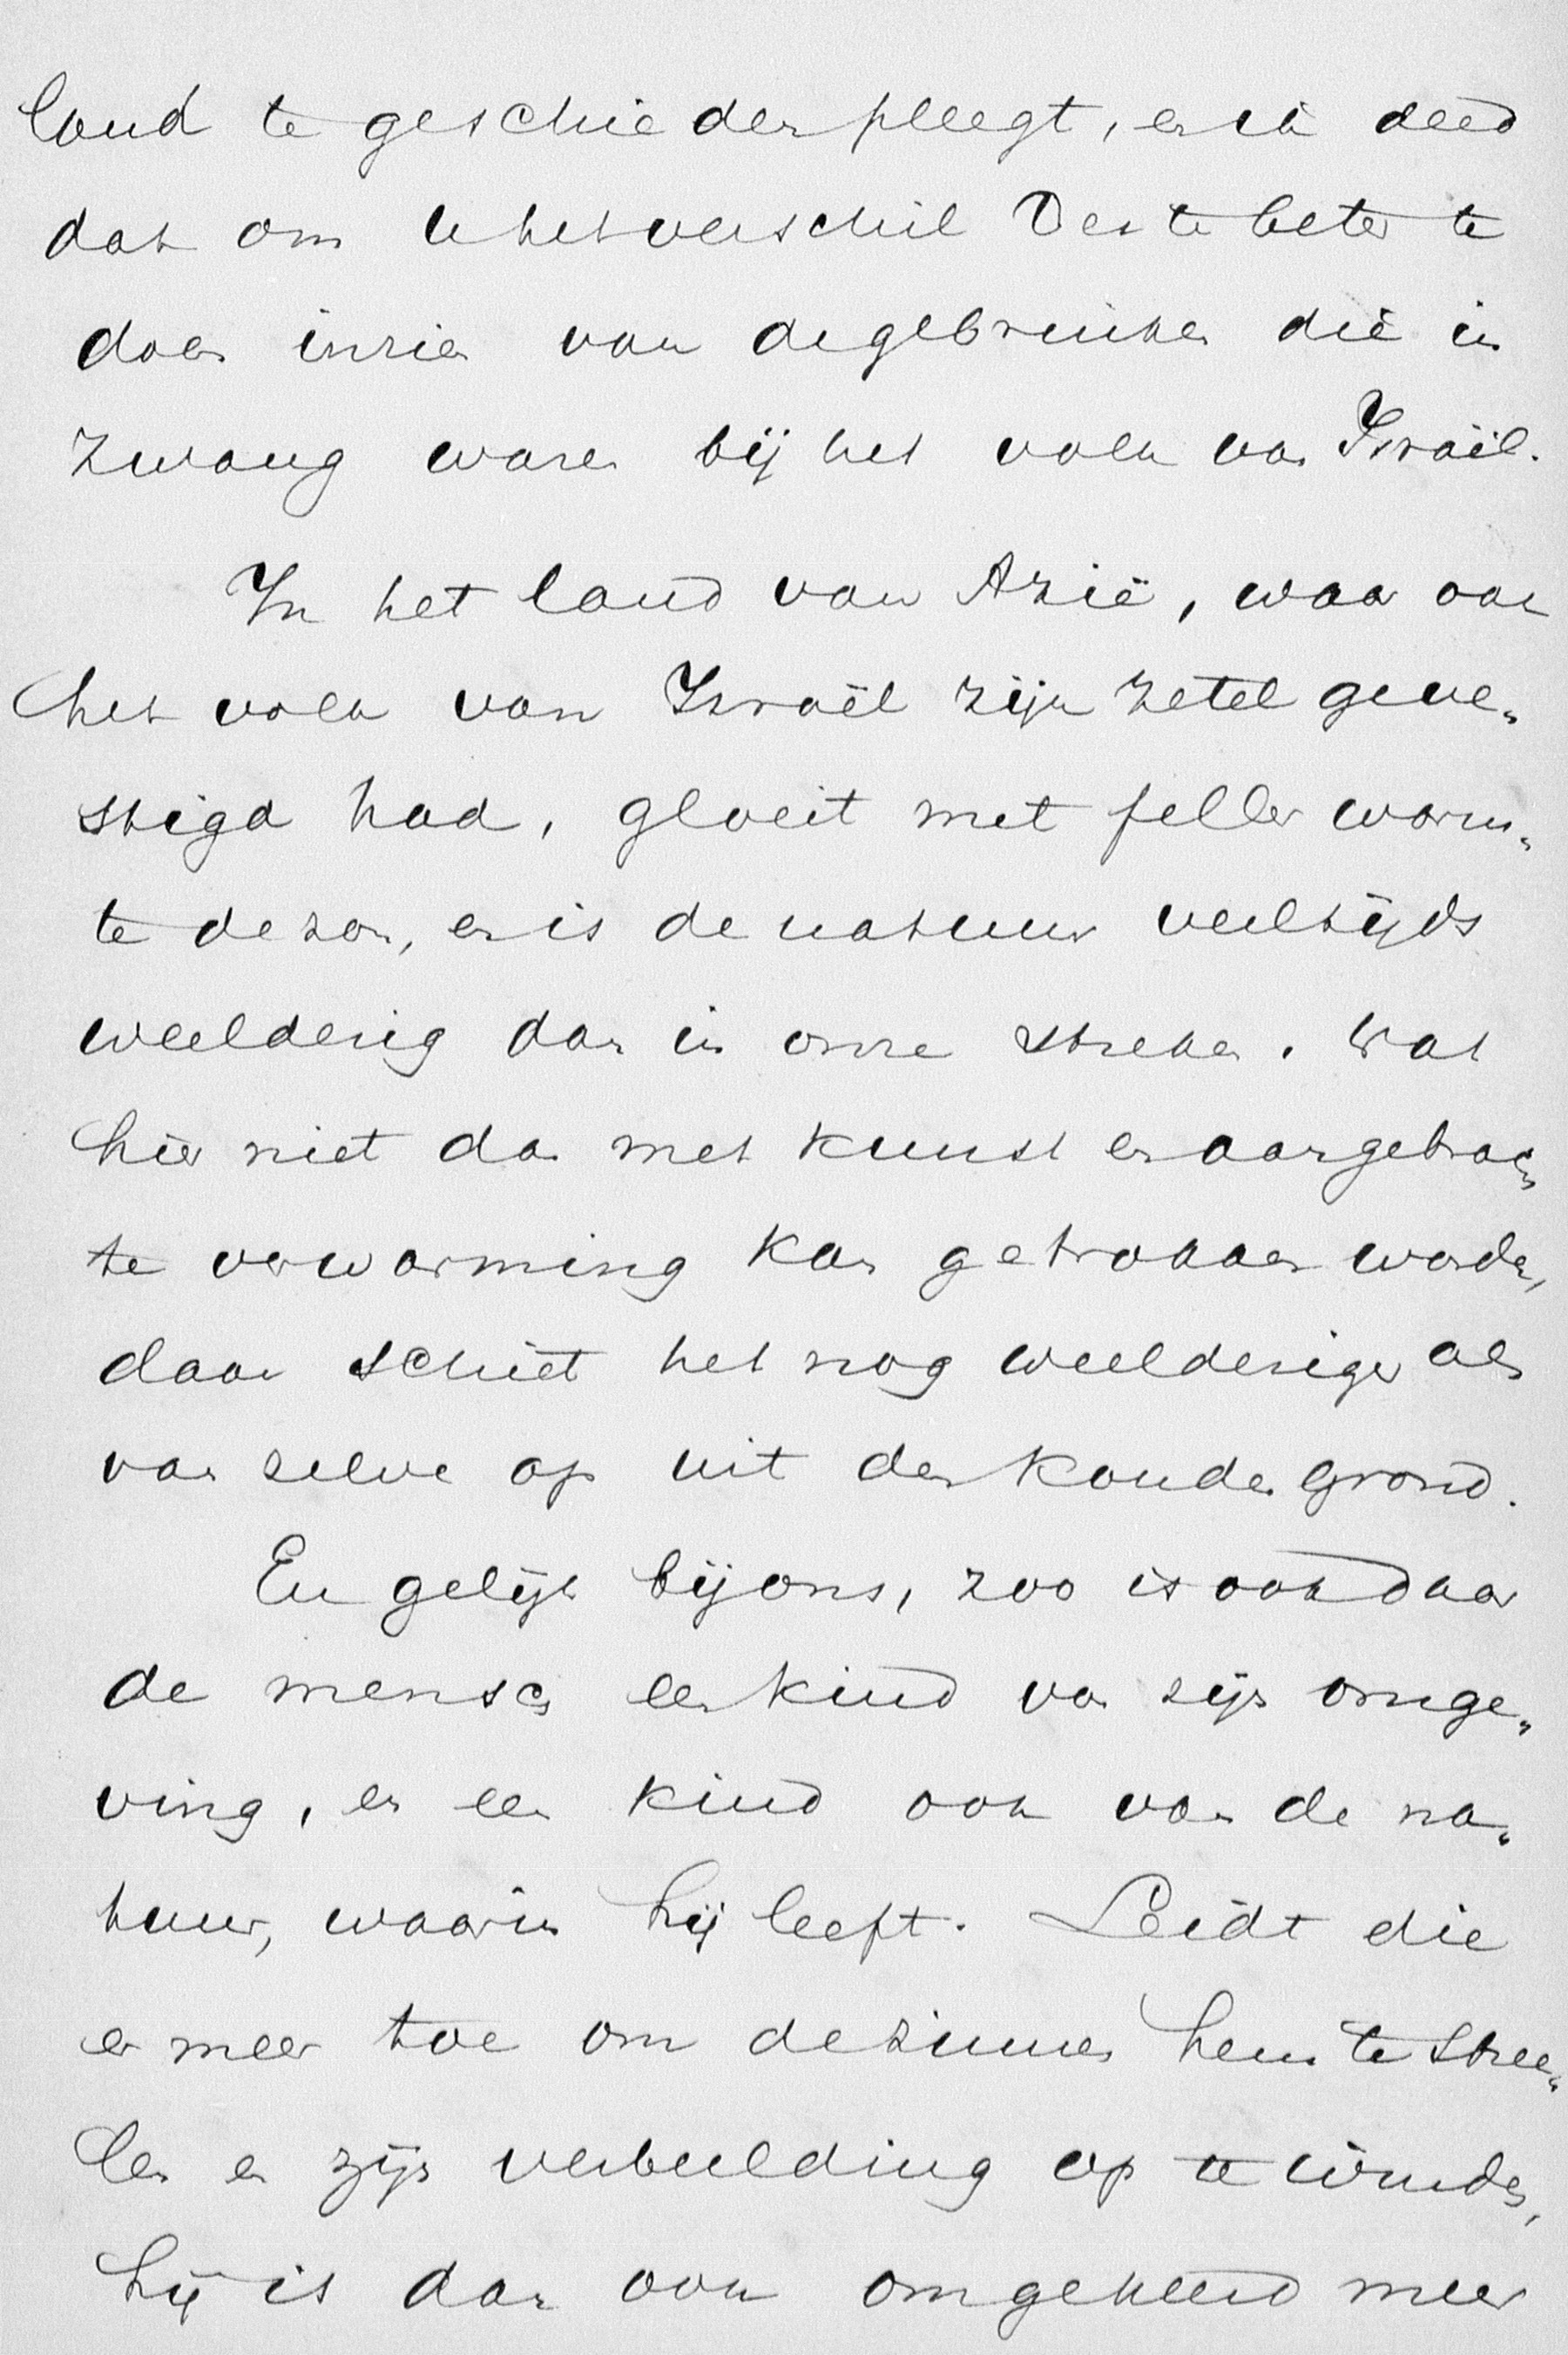 land te geschieden pleegt, en ik deed
dat om U het verschil des te beter te
doen inzien van de gebruiken die in
zwang waren bij het volk van Israël.
In het land van Azië, waar ook
het volk van Israël zijn zetel geve„
stigd had, gloeit met feller warm„
te de zon, en is de natuur veeltijds
weelderig dan in onze streken. Wat
hier niet dan met kunst en aangebrach„
te verwarming kan getrokken worden,
daar schiet het nog weelderiger als
van zelve op uit den kouden grond.
En gelijk bij ons, zoo is ook daar
de mensch een kind van zijn omge„
ving, en een kind ook van de na„
tuur, waarin hij leeft. Leidt die
er meer toe om de zinnen hem te stree„
len en zijn verbeelding op te winden,
hij is dan ook omgekeerd meer